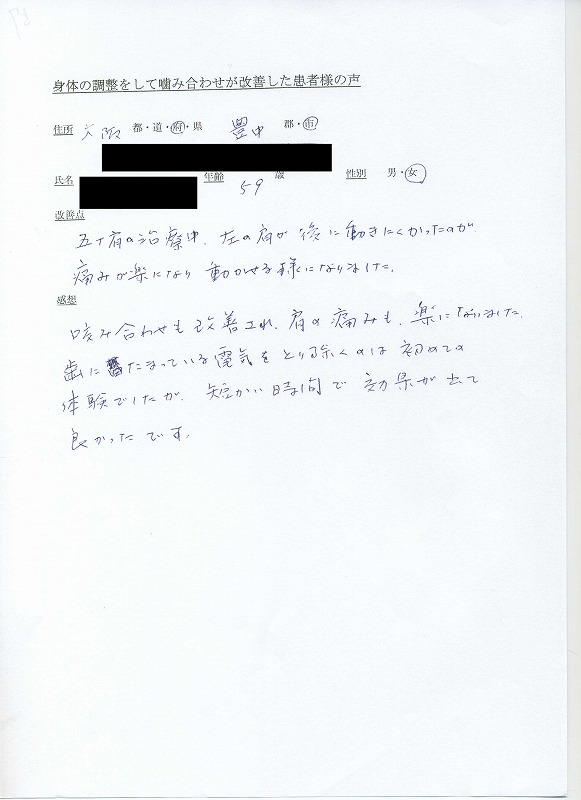 身体の調整をして噛み合わせが改善した患者様の声
住所 大阪 都・道・府・県 豊中 郡・市
氏名 年齢 59 歳 性別 男・女
改善点
五十肩の治療中、左の肩が後に動きにくかったのが
痛みが楽になり動かせる様になりました。
感想
咬み合わせも改善され、肩の痛みも、楽になりました。
歯にたまっている電気をとり除くのは初めての
体験でしたが、短かい時間で効果が出て
良かったです。